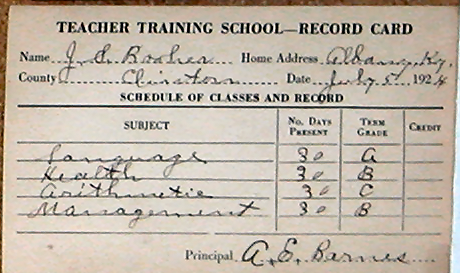 TEACHER TRAINING SCHOOL—RECORD CARD
Name J. S. Booher Home Address Albany, Ky.
County Clinton Date July 5 1924
SCHEDULE OF CLASSES AND RECORD
SUBJECT No. Days Present Term Grade Credit
Language 30 A
Health 30 B
Arithmetic 30 C
Management 30 B
Principal A. E. Barnes